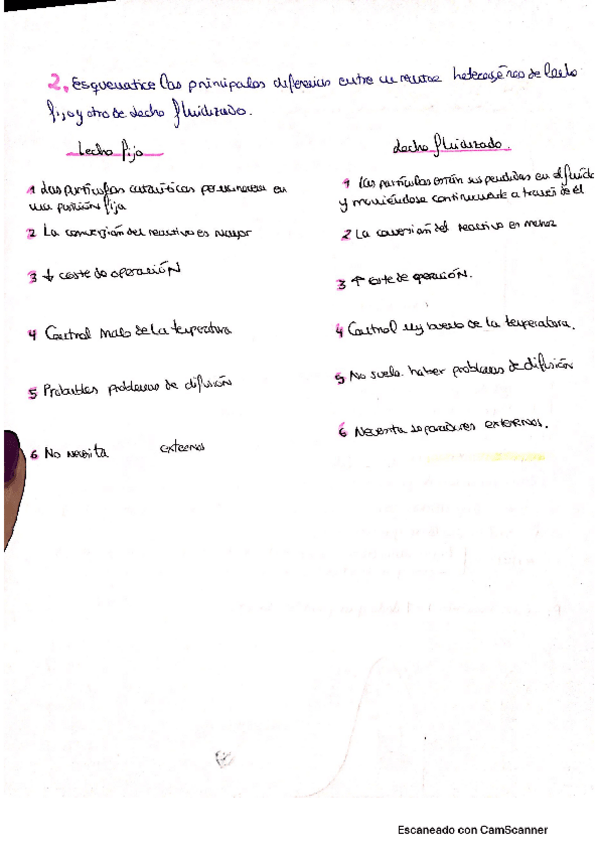 2. Esquematice las principales diferencias entre un reactor heterogéneo de lecho
fijo y otro de lecho fluidizado.
Lecho fijo
1 Las partículas catalíticas permanecen en
una posición fija
2 La conversión del reactivo es mayor
3 ↓ coste de operación
4 Control malo de la temperatura
5 Probables problemas de difusión
6 No necesita externos
Lecho fluidizado.
1 Las partículas están suspendidas en el fluido
y moviéndose continuamente a través de él
2 La conversión del reactivo es menor
3 ↑ coste de operación.
4 Control muy bueno de la temperatura.
5 No suele haber problemas de difusión
6 Necesita separadores externos.
Escaneado con CamScanner